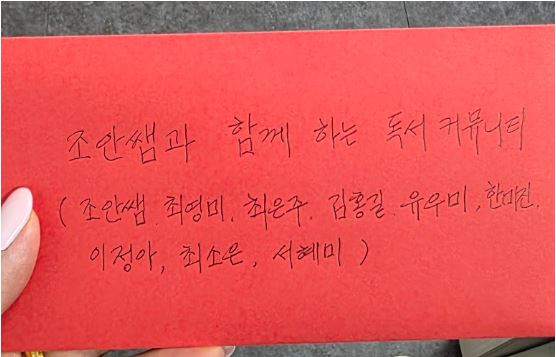 조안쌤과 함께 하는 독서 커뮤니티
( 조안쌤. 최영미. 최은주. 김홍길. 유우미, 한미진.
이정아, 최소은, 서혜미 )